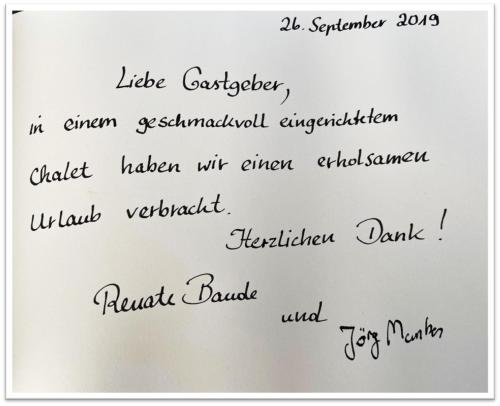 26. September 2019
Liebe Gastgeber,
in einem geschmackvoll eingerichtetem
Chalet haben wir einen erholsamen
Urlaub verbracht.
Herzlichen Dank!
Renate Baude
und
Jörg